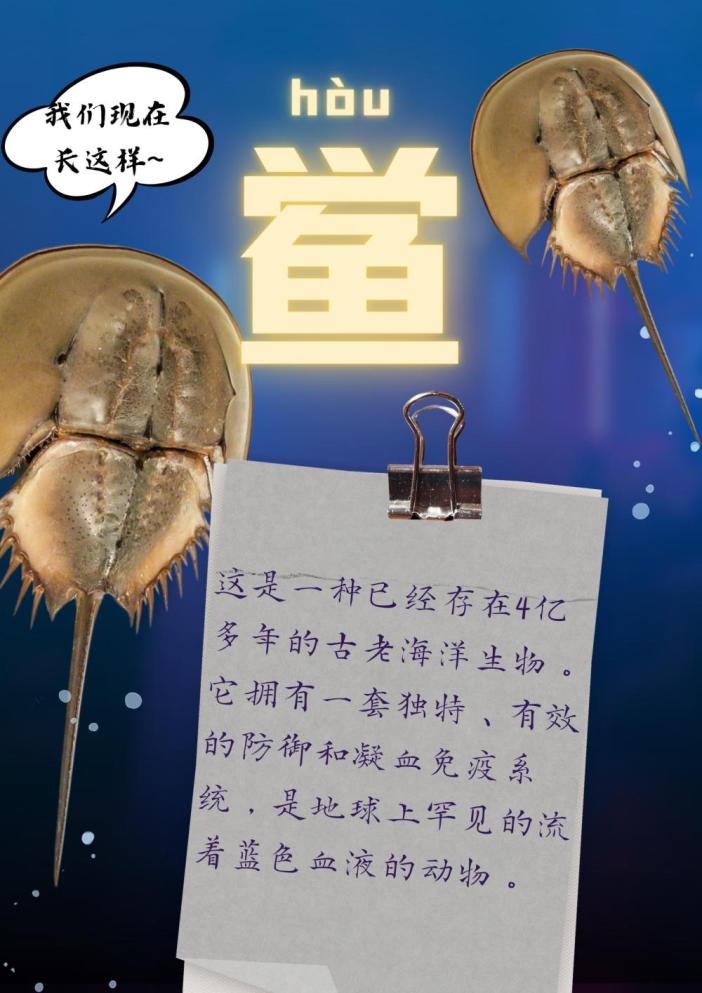 hòu
鲎
我们现在
长这样~
这是一种已经存在4亿
多年的古老海洋生物。
它拥有一套独特、有效
的防御和凝血免疫系
统，是地球上罕见的流
着蓝色血液的动物。